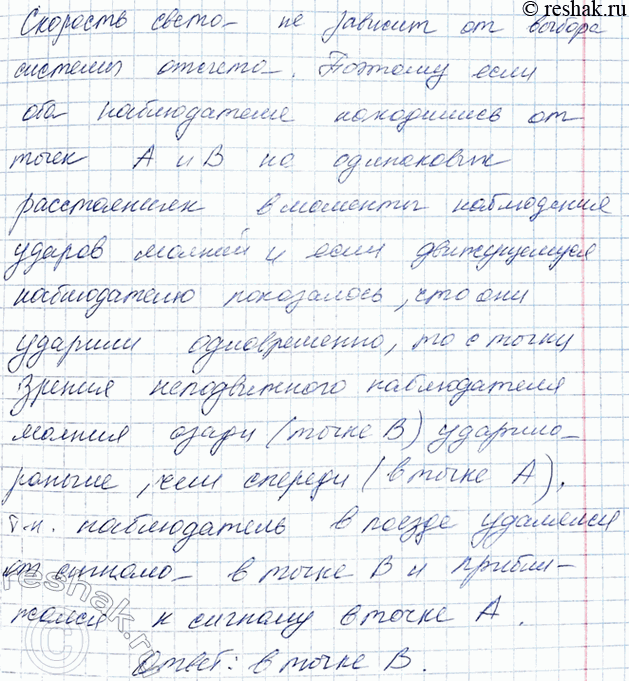 © reshak.ru
Скорость света не зависит от выбора
системы отсчета. Поэтому если
оба наблюдателя находились от
точек А и В на одинаковых
расстояниях в моменты наблюдения
ударов молний и если движущемуся
наблюдателю показалось, что они
ударили одновременно, то с точки
зрения неподвижного наблюдателя
молния сзади (точке В) ударила
раньше, чем спереди (в точке А),
т.к. наблюдатель в поезде удалялся
от сигнала в точке В и прибли-
жался к сигналу в точке А.
Ответ: в точке В.
reshak.ru
©